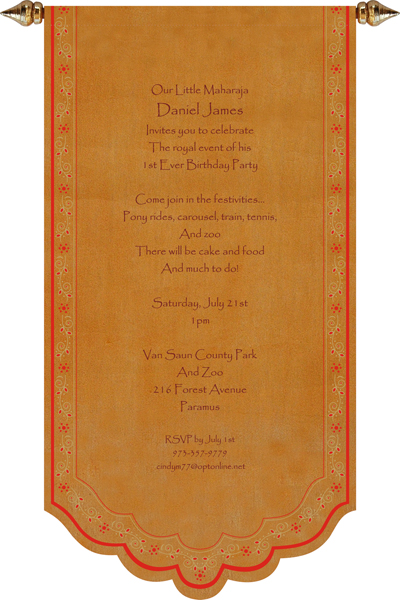 Our Little Maharaja
Daniel James
Invites you to celebrate
The royal event of his
1st Ever Birthday Party
Come join in the festivities...
Pony rides, carousel, train, tennis,
And zoo
There will be cake and food
And much to do!
Saturday, July 21st
1pm
Van Saun County Park
And Zoo
216 Forest Avenue
Paramus
RSVP by July 1st
973-357-9779
zindys77@optonline.net